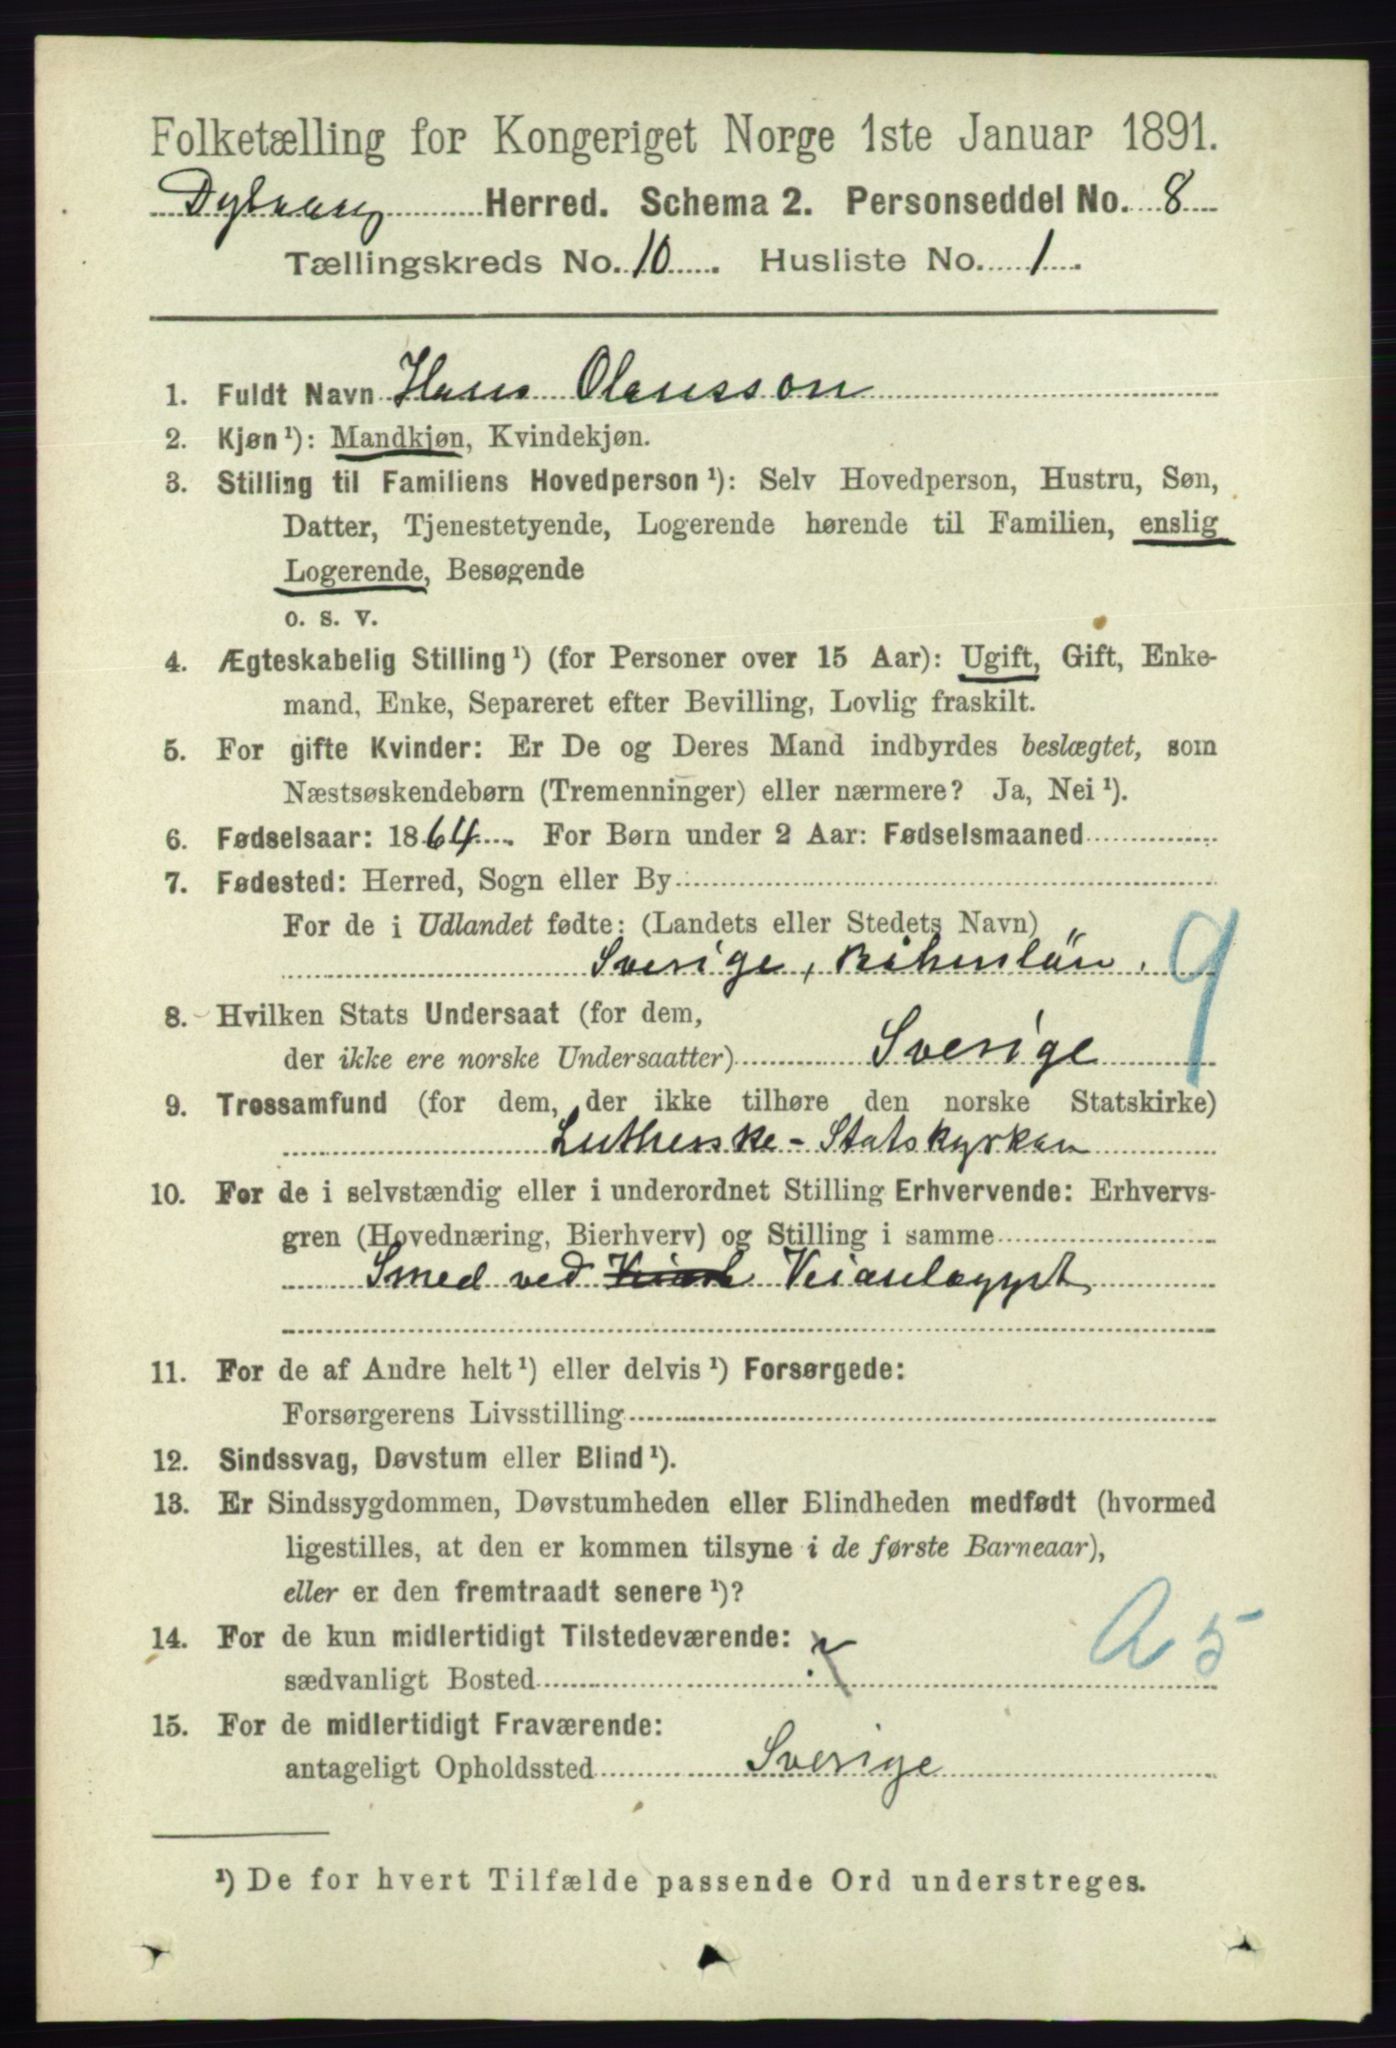 Folketælling for Kongeriget Norge 1ste Januar 1891.
Dybvaag Herred. Schema 2. Personseddel No. 8
Tællingskreds No. 10. Husliste No. 1.
1. Fuldt Navn Hans Olausson
2. Kjøn¹): Mandkjøn, Kvindekjøn.
3. Stilling til Familiens Hovedperson¹): Selv Hovedperson, Hustru, Søn,
Datter, Tjenestetyende, Logerende hørende til Familien, enslig
Logerende, Besøgende
o. s. v.
4. Ægteskabelig Stilling¹) (for Personer over 15 Aar): Ugift, Gift, Enke-
mand, Enke, Separeret efter Bevilling, Lovlig fraskilt.
5. For gifte Kvinder: Er De og Deres Mand indbyrdes beslægtet, som
Næstsøskendebørn (Tremenninger) eller nærmere? Ja, Nei¹).
6. Fødselsaar: 1864. For Børn under 2 Aar: Fødselsmaaned
7. Fødested: Herred, Sogn eller By
For de i Udlandet fødte: (Landets eller Stedets Navn)
Sverige, Bohuslän. 9
8. Hvilken Stats Undersaat (for dem,
der ikke ere norske Undersaatter) Sverige
9. Trossamfund (for dem, der ikke tilhøre den norske Statskirke)
Lutherske-Statskyrkan
10. For de i selvstændig eller i underordnet Stilling Erhvervende: Erhvervs-
gren (Hovednæring, Bierhverv) og Stilling i samme
Smed ved Veianlægget
11. For de af Andre helt¹) eller delvis¹) Forsørgede:
Forsørgerens Livsstilling
12. Sindssvag, Døvstum eller Blind¹).
13. Er Sindssygdommen, Døvstumheden eller Blindheden medfødt (hvormed
ligestilles, at den er kommen tilsyne i de første Barneaar),
eller er den fremtraadt senere¹)?
14. For de kun midlertidigt Tilstedeværende: A 5
sædvanligt Bosted
15. For de midlertidigt Fraværende:
antageligt Opholdssted Sverige
¹) De for hvert Tilfælde passende Ord understreges.